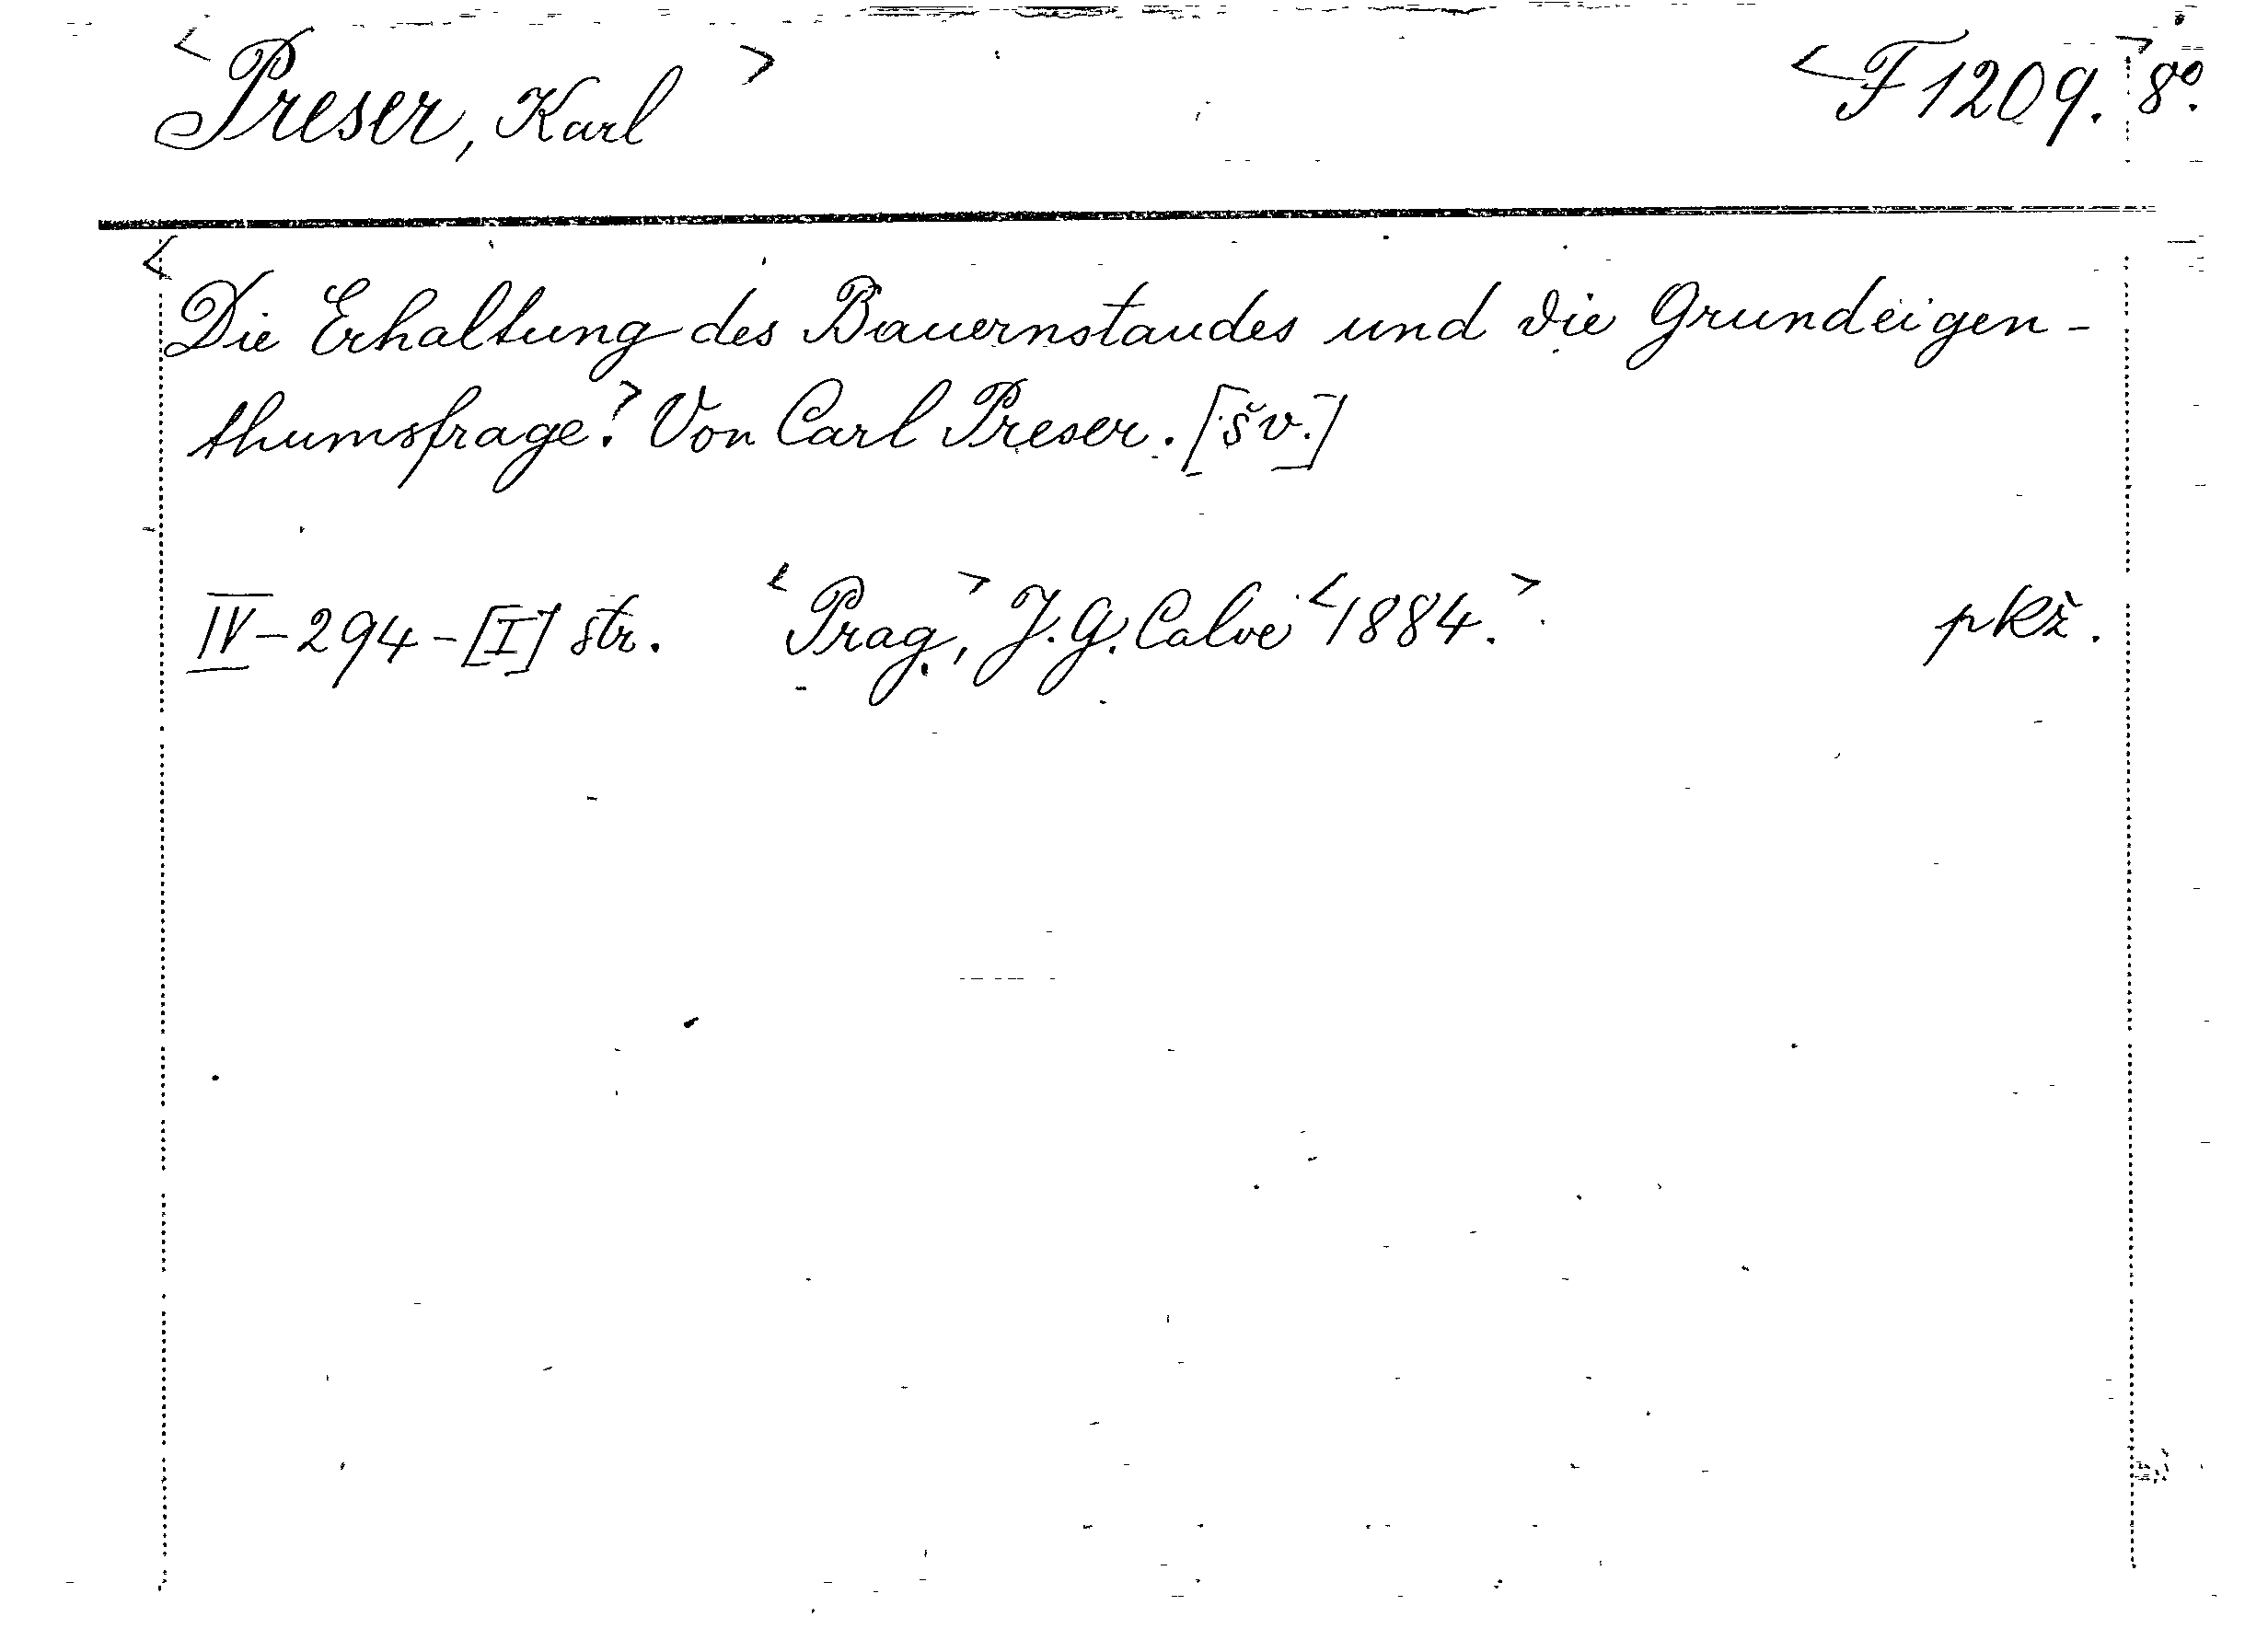 <Preser, Karl> <F 1209.> 8º.
<Die Erhaltung des Bauernstandes und die Grundeigen-
thumsfrage.> Von Carl Preser. [šv.]
IV-294-[I] str. <Prag>, J. G. Calve <1884.> pkž.